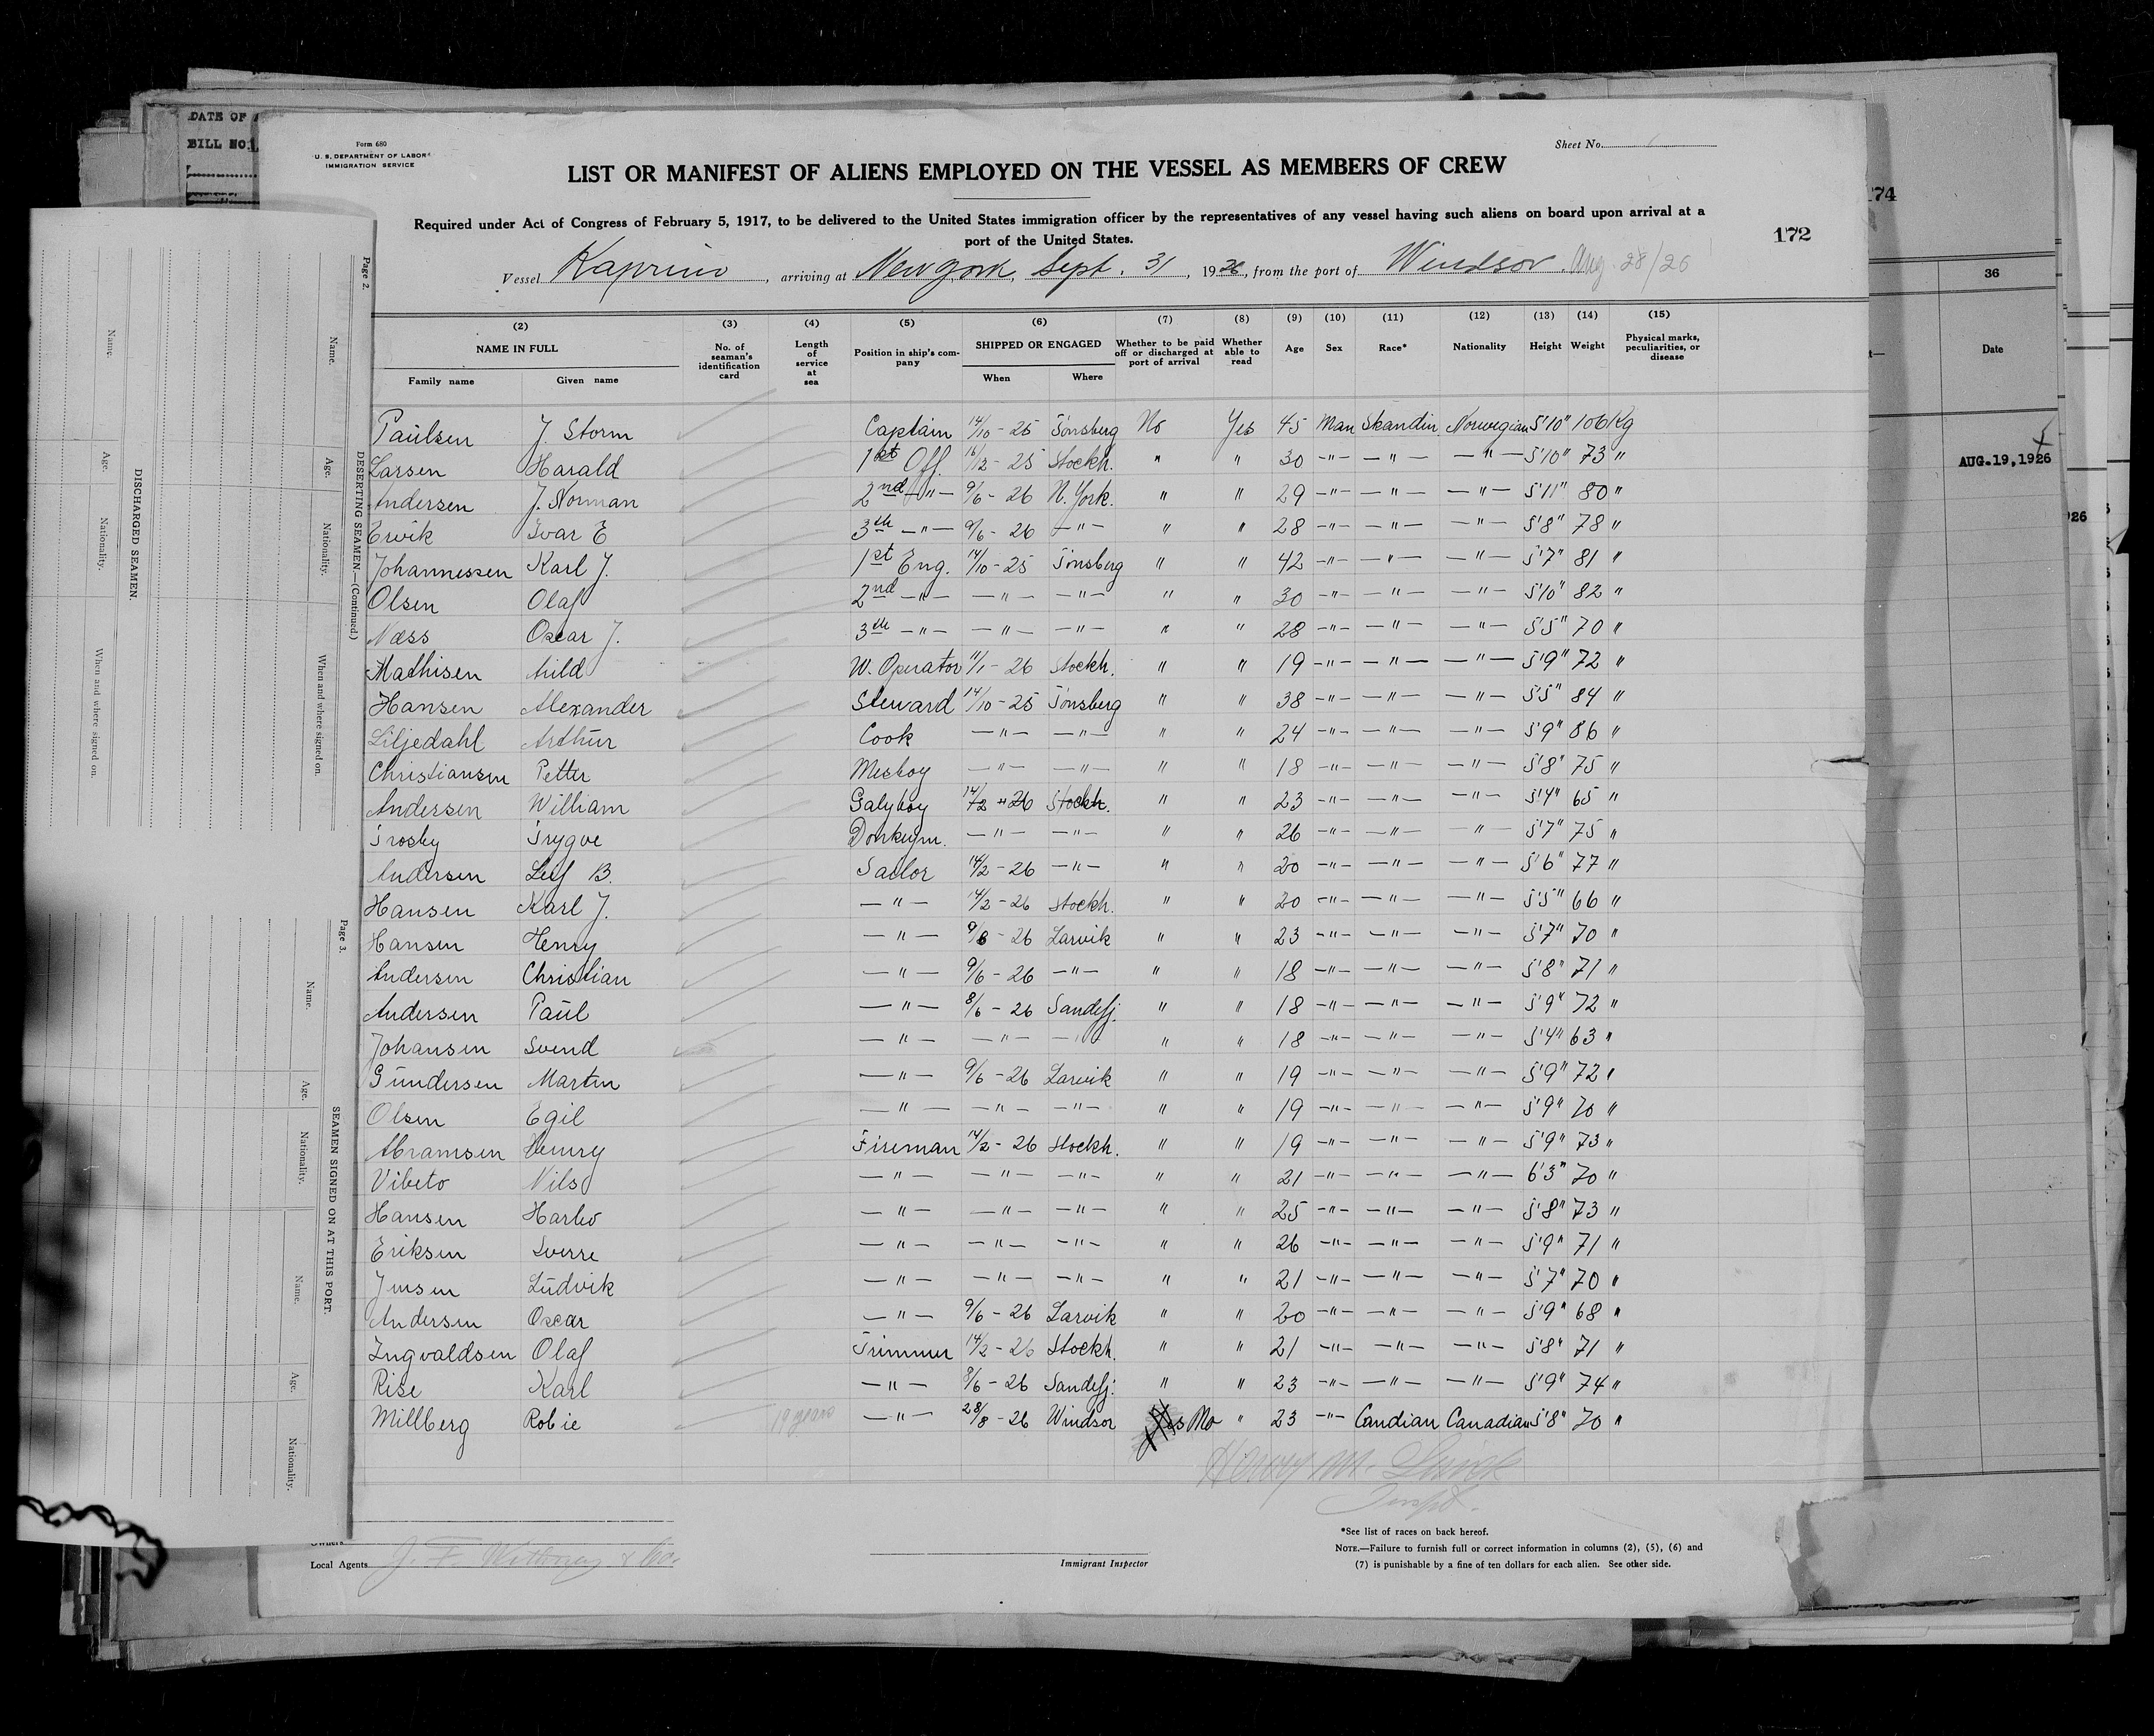 DATE OF
BILL NO.
Form 680
U. S. DEPARTMENT OF LABOR
IMMIGRATION SERVICE
Sheet No.
LIST OR MANIFEST OF ALIENS EMPLOYED ON THE VESSEL AS MEMBERS OF CREW
Required under Act of Congress of February 5, 1917, to be delivered to the United States immigration officer by the representatives of any vessel having such aliens on board upon arrival at a
port of the United States.
172
Vessel Kaprino, arriving at New york, Sept. 31, 1926, from the port of Windsor. Aug. 28/26
(2) (3) (4) (5) (6) (7) (8) (9) (10) (11) (12) (13) (14) (15)
NAME IN FULL No. of seaman's identification card Length of service at sea Position in ship's company SHIPPED OR ENGAGED Whether to be paid off or discharged at port of arrival Whether able to read Age Sex Race* Nationality Height Weight Physical marks, peculiarities, or disease
Family name Given name When Where
Paulsen J. Storm Captain 14/10 - 25 Tönsberg No Yes 45 Man Skandin. Norwegian 5'10" 106 Kg
Larsen Harald 1st Off. 16/12 - 25 Stockh. " " 30 -"- -"- -"- 5'10" 73 "
Andersen J. Norman 2nd -"- 9/6 - 26 N. York. " " 29 -"- -"- -"- 5'11" 80 "
Ervik Ivar E 3th -"- 9/6 - 26 -"- " " 28 -"- -"- -"- 5'8" 78 "
Johannessen Karl J. 1st Eng. 14/10 - 25 Tönsberg " " 42 -"- -"- -"- 5'7" 81 "
Olsen Olaf 2nd -"- -"- -"- " " 30 -"- -"- -"- 5'10" 82 "
Næss Oscar J. 3th -"- -"- -"- " " 28 -"- -"- -"- 5'5" 70 "
Mathisen Auld W. Operator 11/1 - 26 Stockh. " " 19 -"- -"- -"- 5'9" 72 "
Hansen Alexander Steward 14/10 - 25 Tönsberg " " 38 -"- -"- -"- 5'5" 84 "
Liljedahl Arthur Cook -"- -"- " " 24 -"- -"- -"- 5'9" 86 "
Christiansen Petter Messboy -"- -"- " " 18 -"- -"- -"- 5'8" 75 "
Andersen William Galyboy 14/2 - 26 Stockh. " " 23 -"- -"- -"- 5'4" 65 "
Trosby Trygve Donkeym. -"- -"- " " 26 -"- -"- -"- 5'7" 75 "
Andersen Leif B. Sailor 14/2 - 26 -"- " " 20 -"- -"- -"- 5'6" 77 "
Hansen Karl J. -"- 14/2 - 26 Stockh. " " 20 -"- -"- -"- 5'5" 66 "
Hansen Henry -"- 9/6 - 26 Larvik " " 23 -"- -"- -"- 5'7" 70 "
Andersen Christian -"- 9/6 - 26 -"- " " 18 -"- -"- -"- 5'8" 71 "
Andersen Paul -"- 8/6 - 26 Sandefj. " " 18 -"- -"- -"- 5'9" 72 "
Johansen Svend -"- -"- -"- " " 18 -"- -"- -"- 5'4" 63 "
Gundersen Martin -"- 9/6 - 26 Larvik " " 19 -"- -"- -"- 5'9" 72 "
Olsen Egil -"- -"- -"- " " 19 -"- -"- -"- 5'9" 70 "
Abramsen Henry Fireman 14/2 - 26 Stockh. " " 19 -"- -"- -"- 5'9" 73 "
Vibeto Nils -"- -"- -"- " " 21 -"- -"- -"- 6'3" 70 "
Hansen -"- -"- -"- " " 25 -"- -"- -"- 5'8" 73 "
Eriksen Sverre -"- -"- -"- " " 26 -"- -"- -"- 5'9" 71 "
Jensen Ludvik -"- -"- -"- " " 21 -"- -"- -"- 5'7" 70 "
Andersen Oscar -"- 9/6 - 26 Larvik " " 20 -"- -"- -"- 5'9" 68 "
Ingvaldsen Olaf Trimmer 14/2 - 26 Stockh. " " 21 -"- -"- -"- 5'8" 71 "
Rise Karl -"- 8/6 - 26 Sandefj. " " 23 -"- -"- -"- 5'9" 74 "
Millberg Robie 19 years -"- 28/8 - 26 Windsor Yes No " 23 -"- Candian Canadian 5'8" 70 "
Henry M.
Inspt.
Owners
Local Agents
Immigrant Inspector
*See list of races on back hereof.
NOTE.—Failure to furnish full or correct information in columns (2), (5), (6) and
(7) is punishable by a fine of ten dollars for each alien. See other side.
Page 2.
DESERTING SEAMEN.—(Continued.)
Name. Age. Nationality. When and where signed on.
DISCHARGED SEAMEN.
Name. Age. Nationality. When and where signed on.
Page 3.
SEAMEN SIGNED ON AT THIS PORT.
Name. Age. Nationality.
Name. Age. Nationality.
274
36
Date
AUG. 19, 1926
926